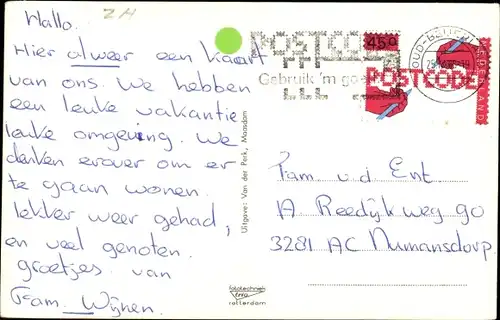 Hallo.
Hier alweer een kaart
van ons we hebben
een leuke vakantie
leuke omgeving. We
denken erover om er
te gaan wonen.
lekker weer gehad,
en veel genoten.
groetjes van
Fam. Wijnen.
Uitgave: Van der Perk, Maasdam
fototechniek
rotterdam
POSTCODE
Gebruik 'm
45c
POSTCODE
NEDERLAND
OUD-BEIJERLAND
Fam v d Ent
A Reedijkweg 90
3281 AC Numansdorp